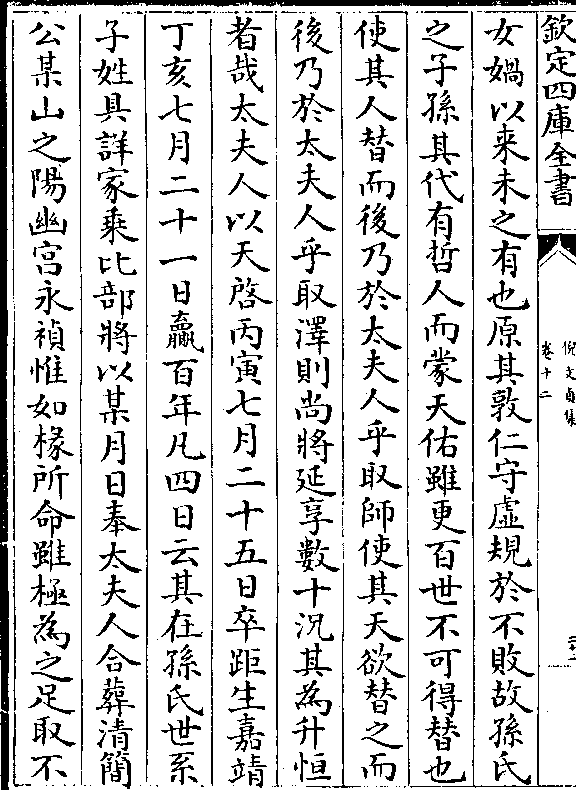 欽定四庫全書
倪文貞集
卷十二
女媧以来未之有也原其敦仁守虚規於不敗故孫氏
之子孫其代有哲人而蒙天佑雖更百世不可得替也
使其人替而後乃於太夫人乎取師使其天欲替之而
後乃於太夫人乎取澤則尚將延享數十況其為升恒
者哉太夫人以天啓丙寅七月二十五日卒距生嘉靖
丁亥七月二十一日贏百年凡四日云其在孫氏世系
子姓具詳家乗比部將以某月日奉太夫人合葬清簡
公某山之陽幽宫永禎惟如椽所命雖極為之足取不